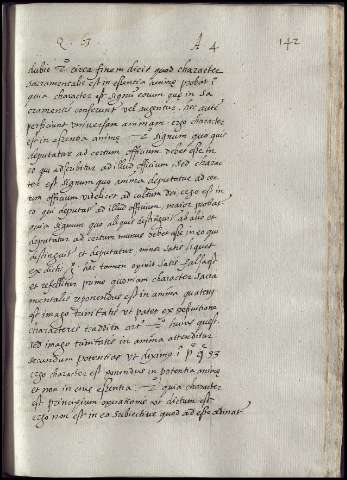 Q. 63 A 4 142
dubie 2º circa finem dicit quod character
sacramentalis est in essentia animę probat
quia character est signum eorum quę in sa
cramentis conferunt vel augentur. hec autē
perficiunt universam animam. ergo character
est in essentia animę 2º signum quo quis
deputatur ad certum officium debet esse in
eo qui adscribitur ad illud officium, sed charac
ter est signum quo anima deputatur ad cer
tum officium videlicet ad cultum dei ergo est in
eo qui deputatur ad illud officium, maior probat
quia signum quo aliquis distinguitur ab alio et
deputatur ad certum munus debet esse in eo qui
distinguitur et deputatur minor satis liquet
ex dictis hęc tamen opinio satis fallax
et refellitur primo quoniam character sacra
mentalis reponendus est in anima quatenus
est imago trinitatis vt patet ex definitione
characteris tradita art. 2º huius quęst.
sed imago trinitatis in anima attenditur
secundum potentias vt diximus 1 p. q. 93
ergo character est ponendus in potentia animę
et non in eius essentia 2º quia character
est principium operationis vt dictum est
ergo non est in eo subiective quod ad esse ordinat